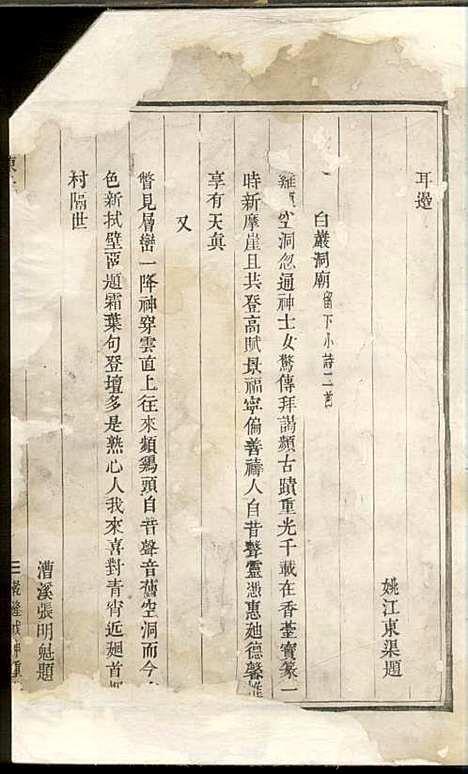 耳邊
姚江東渠題
白巖洞廟留下小詩二首
空洞忽通神士女驚傳拜謁頻古蹟重光千載在香薹寶篆一
時新摩崖且共登高賦景福寧偏善禱人自昔聲靈憑惠廸德馨
享有天眞
又
瞥見層巒一降神穿雲直上往來頻鷄頭自昔聲音舊空洞而今
色新拭壁丽題霜葉句登壇多是熱心人我來喜對青宵近廻首
村隔世
漕溪張明魁題